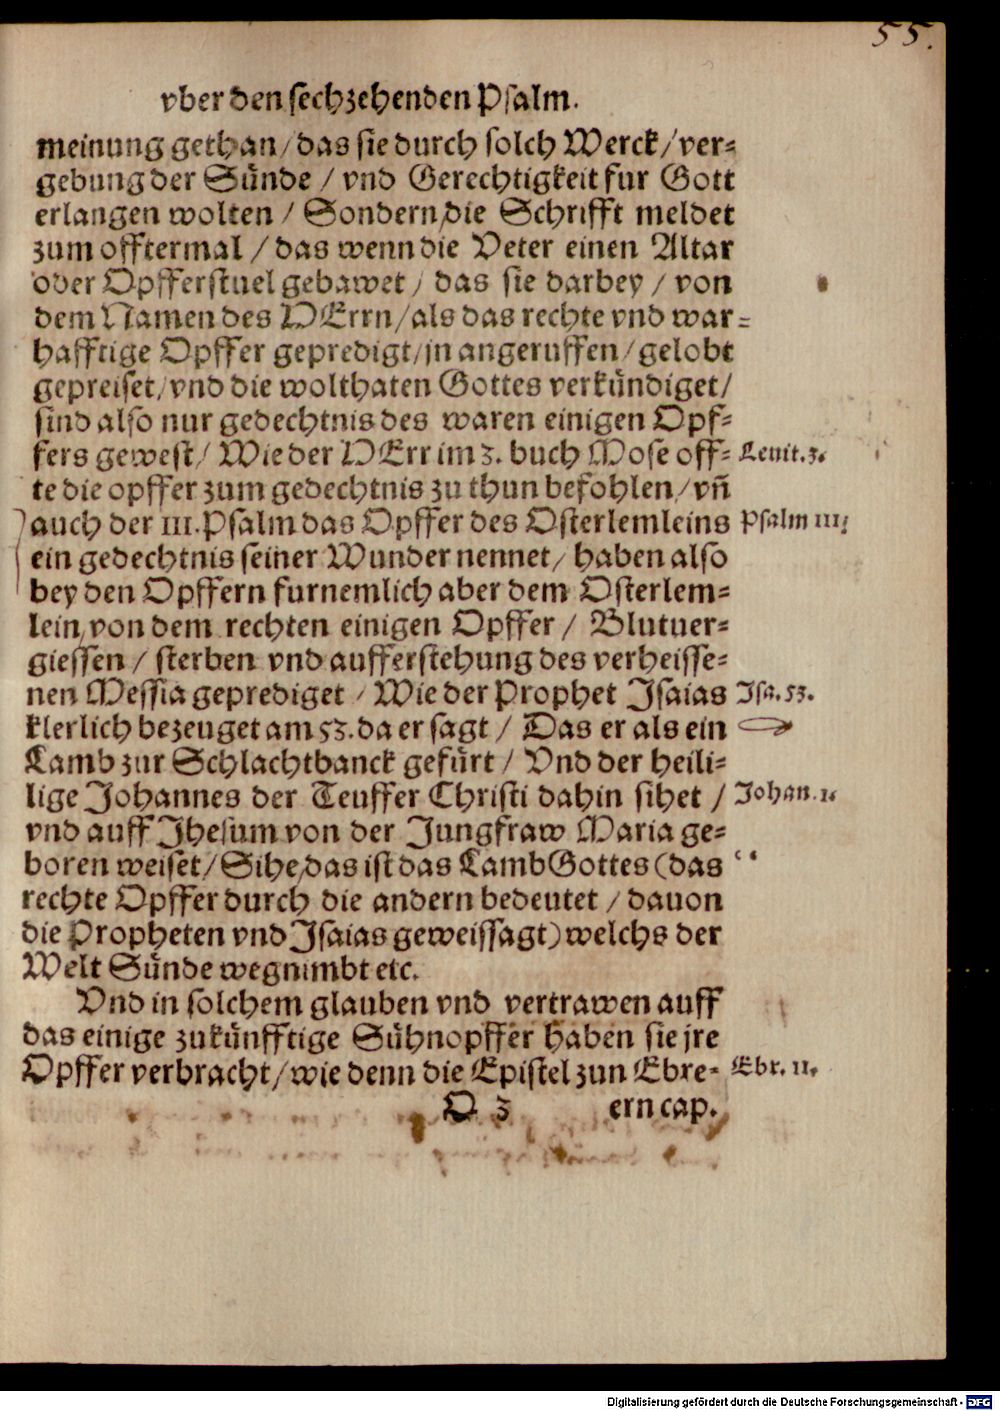 55.
vber den sechzehenden Psalm.
meinung gethan / das sie durch solch Werck / ver-
gebung der Sünde / vnd Gerechtigkeit fur Gott
erlangen wolten / Sondern / die Schrifft meldet
zum offtermal / das wenn die Veter einen Altar
oder Opfferstuel gebawet / das sie darbey / von
dem Namen des HErrn / als das rechte vnd war-
hafftige Opffer gepredigt / jn angeruffen / gelobt
gepreiset / vnd die wolthaten Gottes verkündiget /
sind also nur gedechtnis des waren einigen Opf-
fers gewest / Wie der HErr im 3. buch Mose off- Leuit. 3.
te die opffer zum gedechtnis zu thun befohlen / vñ
auch der 111. Psalm das Opffer des Osterlemleins Psalm 111.
ein gedechtnis seiner Wunder nennet / haben also
bey den Opffern furnemlich aber dem Osterlem-
lein / von dem rechten einigen Opffer / Blutuer-
giessen / sterben vnd aufferstehung des verheisse-
nen Messia geprediget / Wie der Prophet Isaias Isa. 53.
klerlich bezeuget am 53. da er sagt / Das er als ein
Lamb zur Schlachtbanck gefürt / Vnd der heili-
lige Johannes der Teuffer Christi dahin sihet / Johan. 1.
vnd auff Jhesum von der Jungfraw Maria ge-
boren weiset / Sihe / das ist das Lamb Gottes (das
rechte Opffer durch die andern bedeutet / dauon
die Propheten vnd Isaias geweissagt) welchs der
Welt Sünde wegnimbt etc.
Vnd in solchem glauben vnd vertrawen auff
das einige zukünfftige Sühnopffer haben sie jre
Opffer verbracht / wie denn die Epistel zun Ebre- Ebr. 11.
O 3 ern cap.
Digitalisierung gefördert durch die Deutsche Forschungsgemeinschaft - DFG